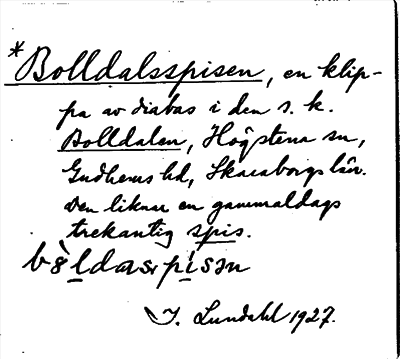 *Bolldalsspisen, en klip-
pa av diabas i den s. k.
Bolldalen, Högstena sn,
Gudhems hd, Skaraborgs län.
Den liknar en gammaldags
trekantig spis.
I. Lundahl 1927.